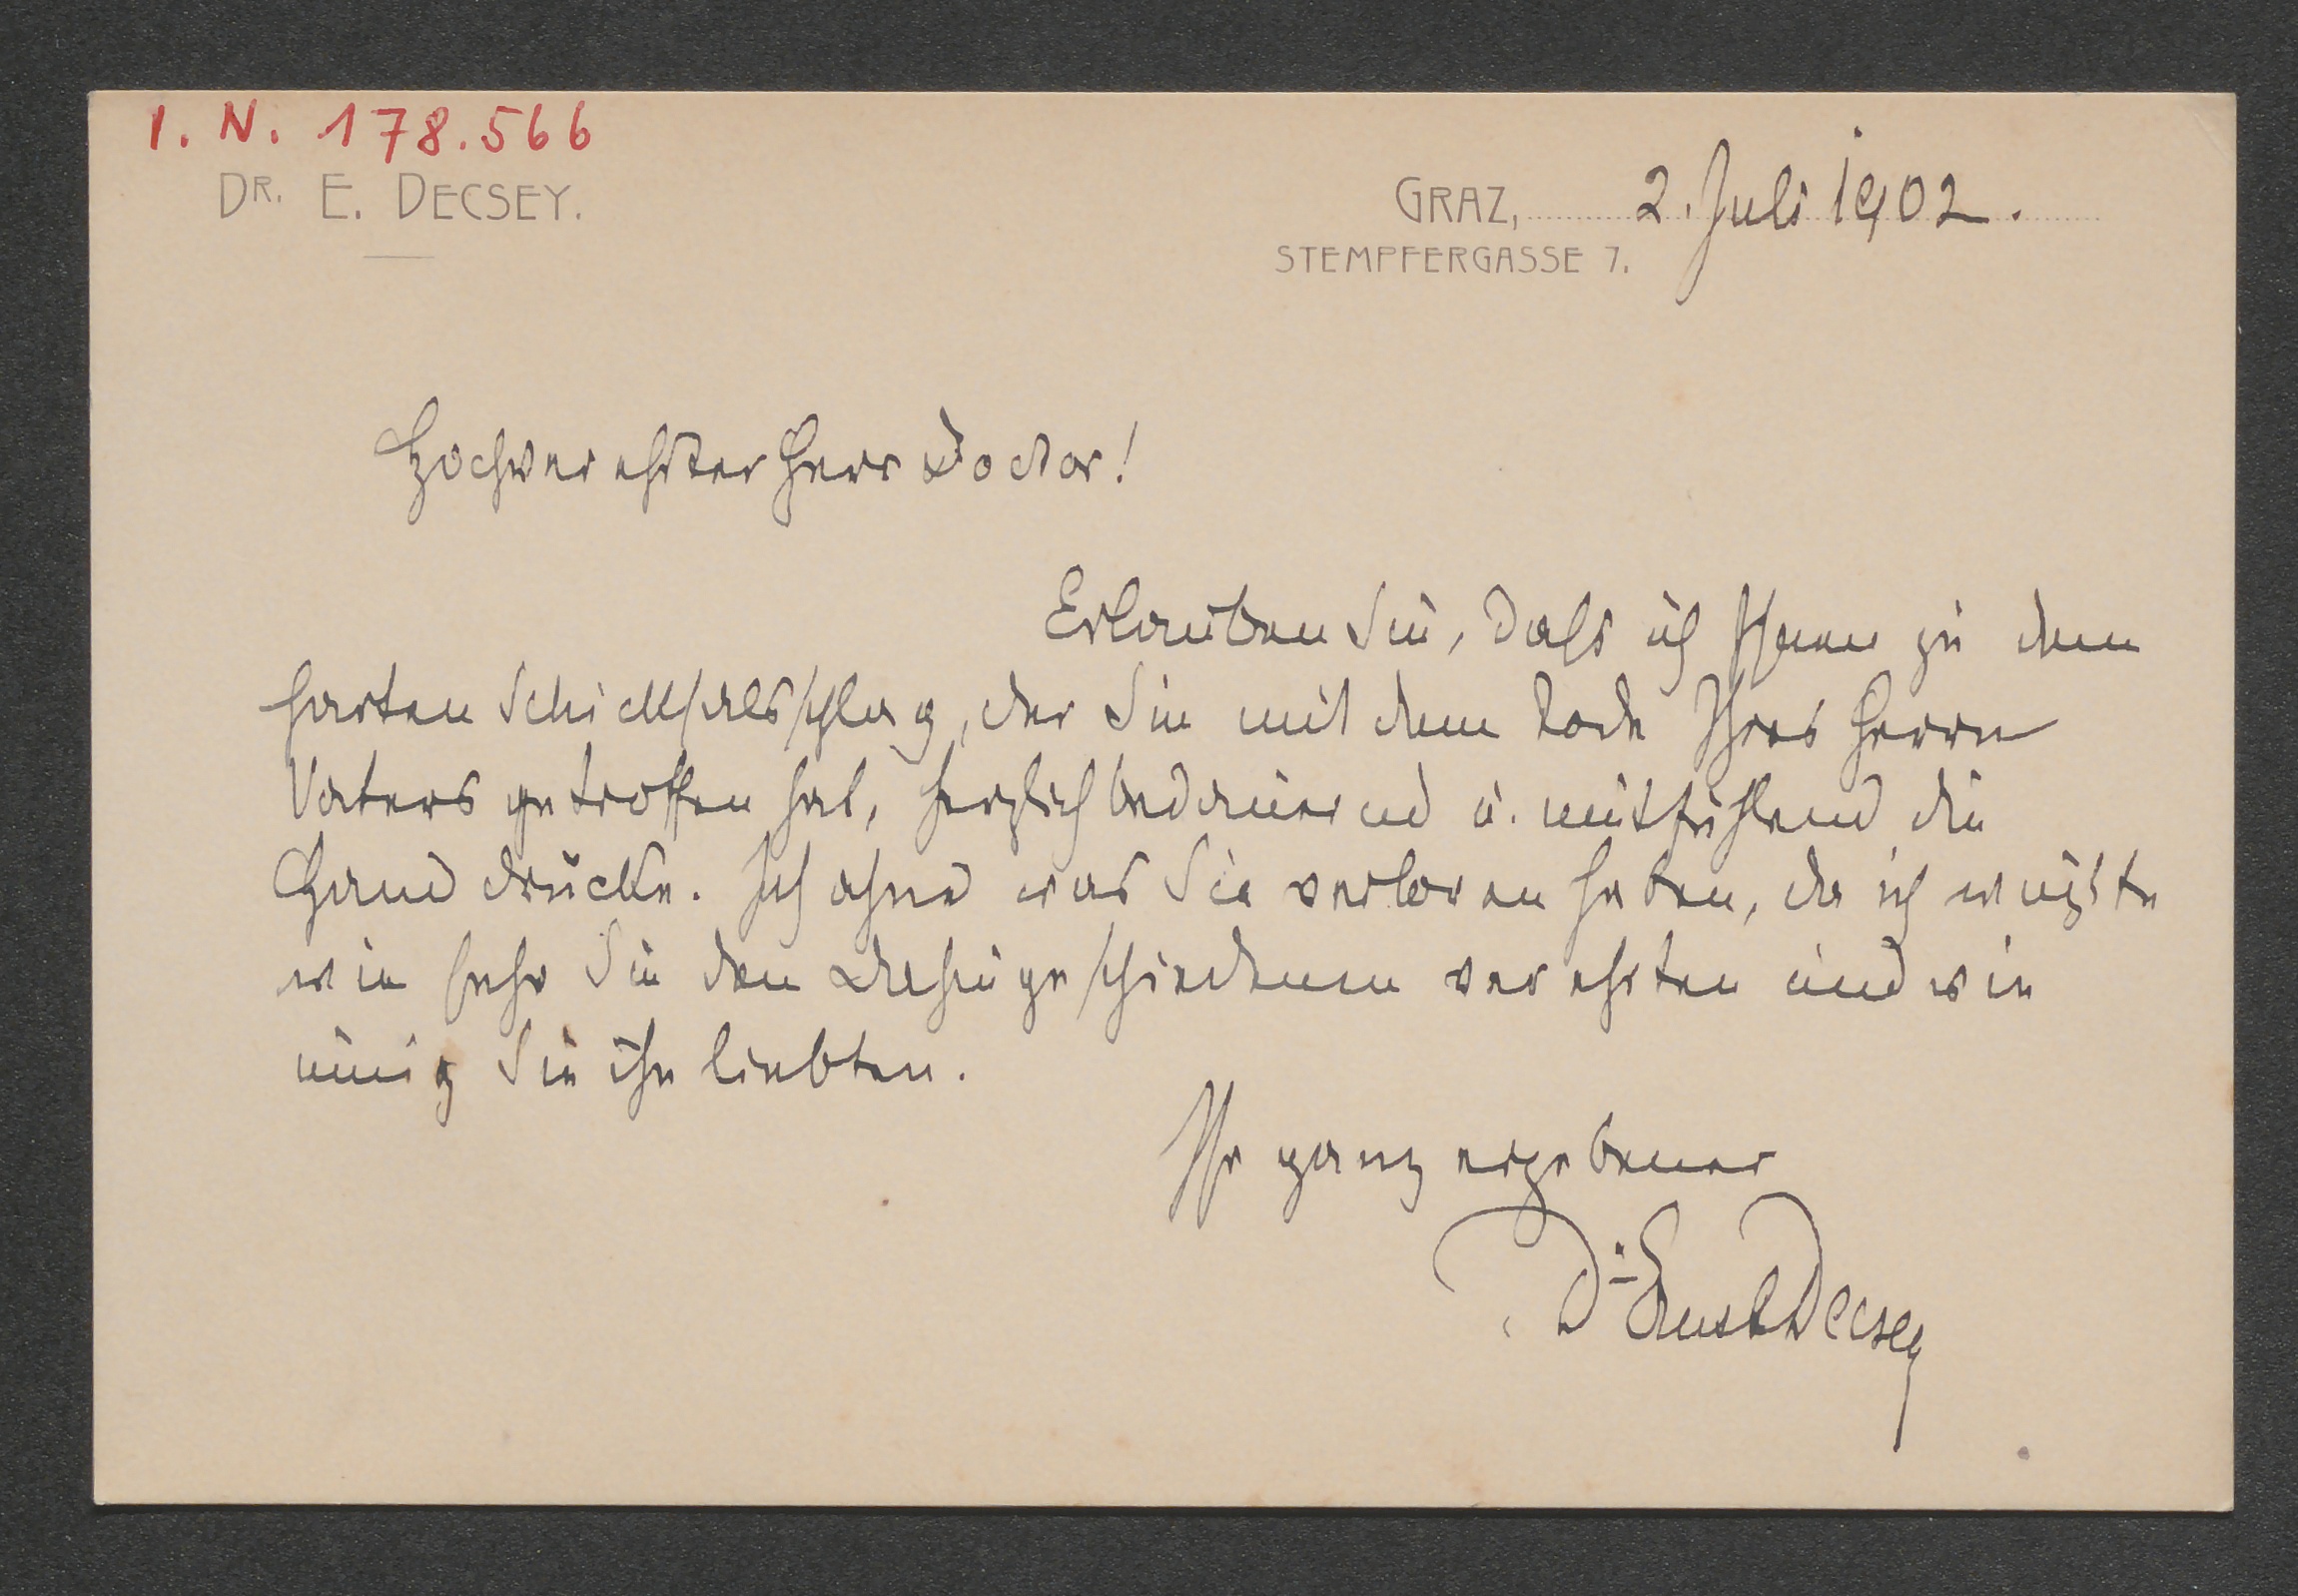 I. N. 178.566
DR. E. DECSEY.
GRAZ, 2. Juli 1902.
STEMPFERGASSE 7.
Hochverehrter Herr Doctor!
Erlauben Sie, dass ich Ihnen zu dem
harten Schicksalsschlag, der Sie mit dem Tode Ihres Herrn
Vaters getroffen hat, herzlich bedauernd u. mitfühlend die
Hand drücke. Ich ahne was Sie verloren haben, da ich wußte
wie sehr Sie den Dahingeschiedenen verehrten und wie
innig Sie ihn liebten.
Ihr ganz ergebener
Dr Ernst Decsey